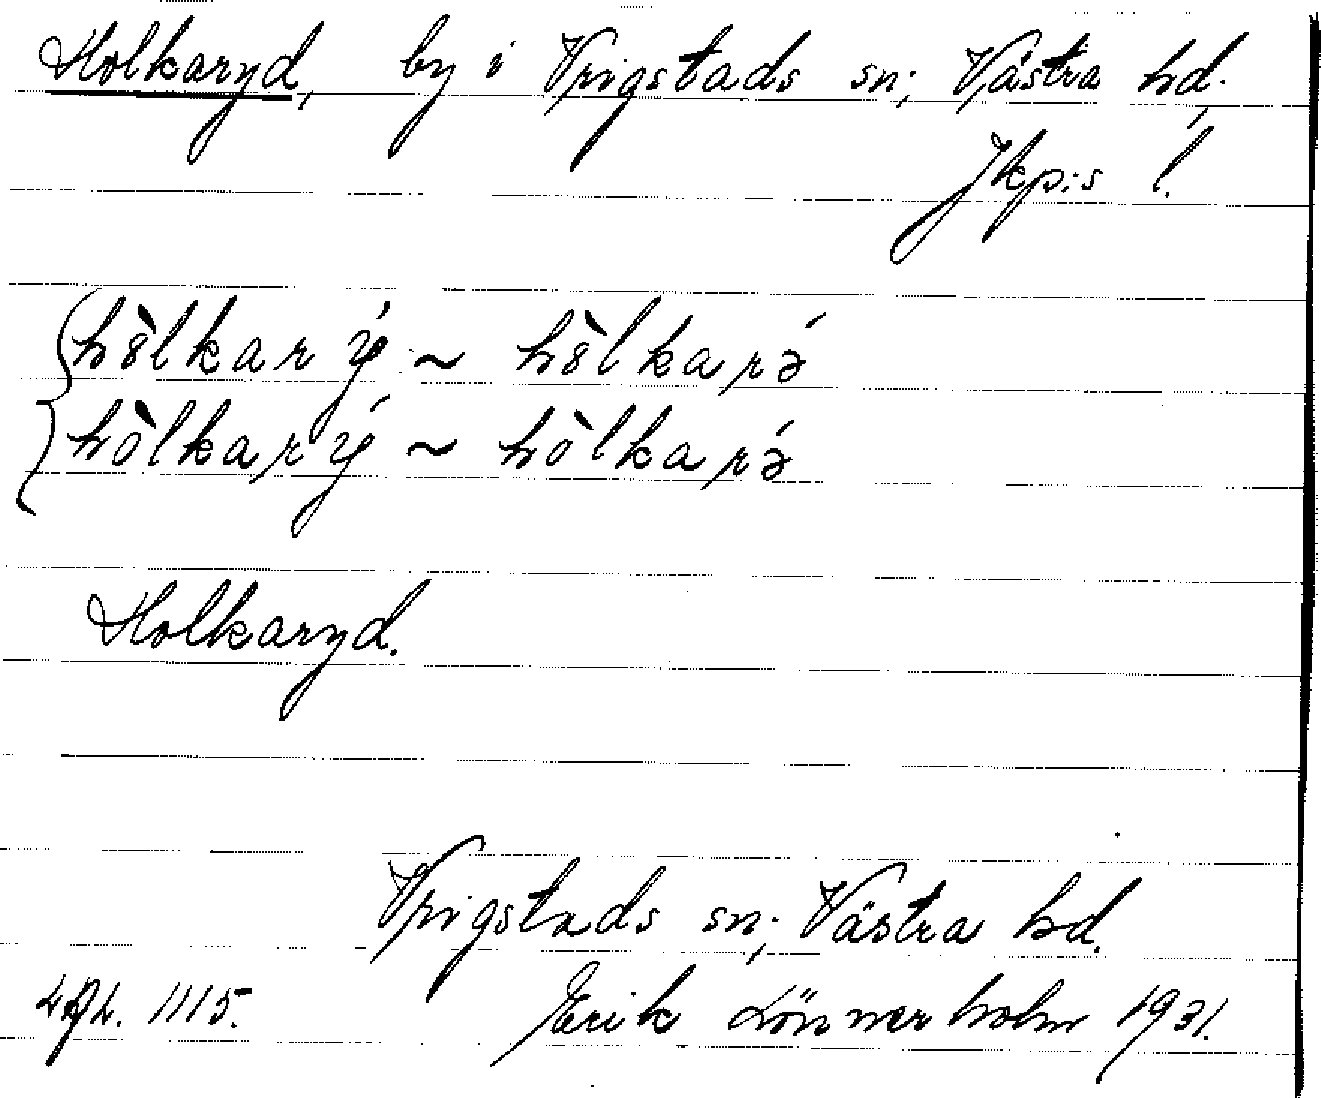 Holkaryd, by i Vrigstads sn; Västra hd.,
Jkp:s l.
hòlkarý ~ hòlkarə́
hòlkarý ~ hòlkarə́
Holkaryd.
Vrigstads sn; Västra hd.
1115. Erik Lönnerholm 1931.